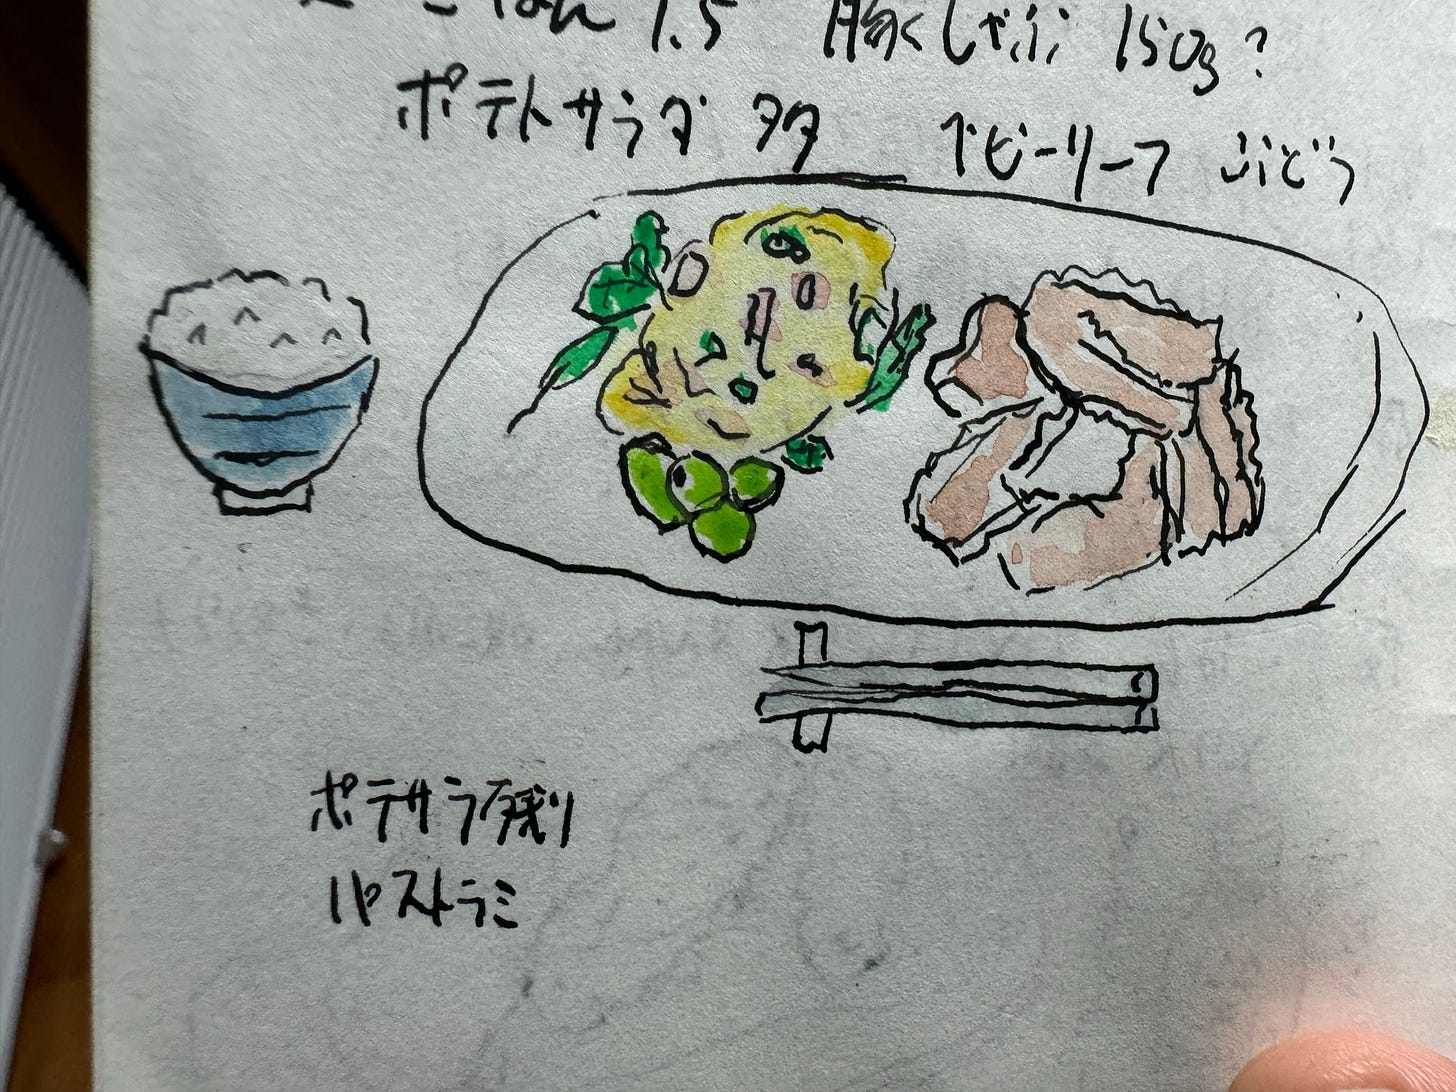 ごはん 1.5 豚しゃぶ 150g?
ポテトサラダ 多 ベビーリーフ ぶどう
ポテサラ残り
パストラミ